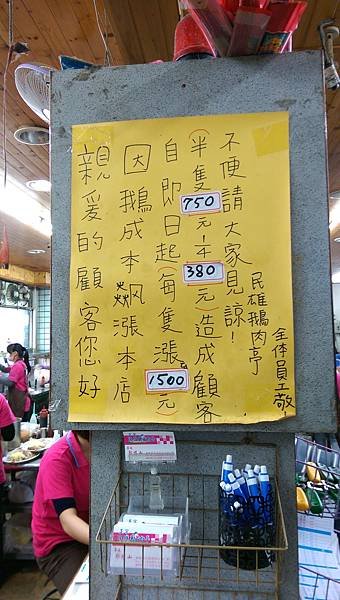 親爱的顧客您好
因鵝成本飆漲本店
自即日起(每隻漲1500元)
(半隻750元!¼380元)造成顧客
不便請大家見諒!
民雄鵝肉亭
全體員工敬